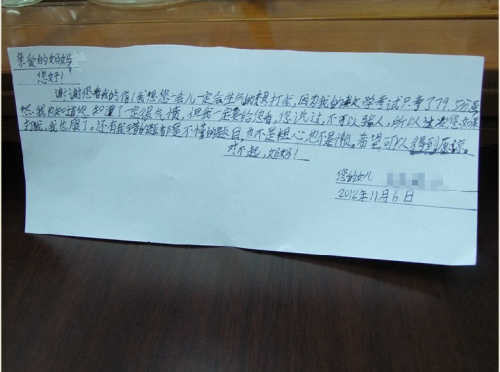 亲爱的妈妈
您好!
谢谢您看我的信!我想您一会儿一定会生气的想打我,因为我的数学考试只考了79.5分
我也知道您知道了一定很气愤,但我一定要给您看,您说过,不可以骗人,所以这次您如果
打我,我也忍了。还有我错的题都是不懂的题目,也不是粗心,也不是懒。希望可以得到原谅。
对不起,妈妈!
您的女儿
2012年11月6日